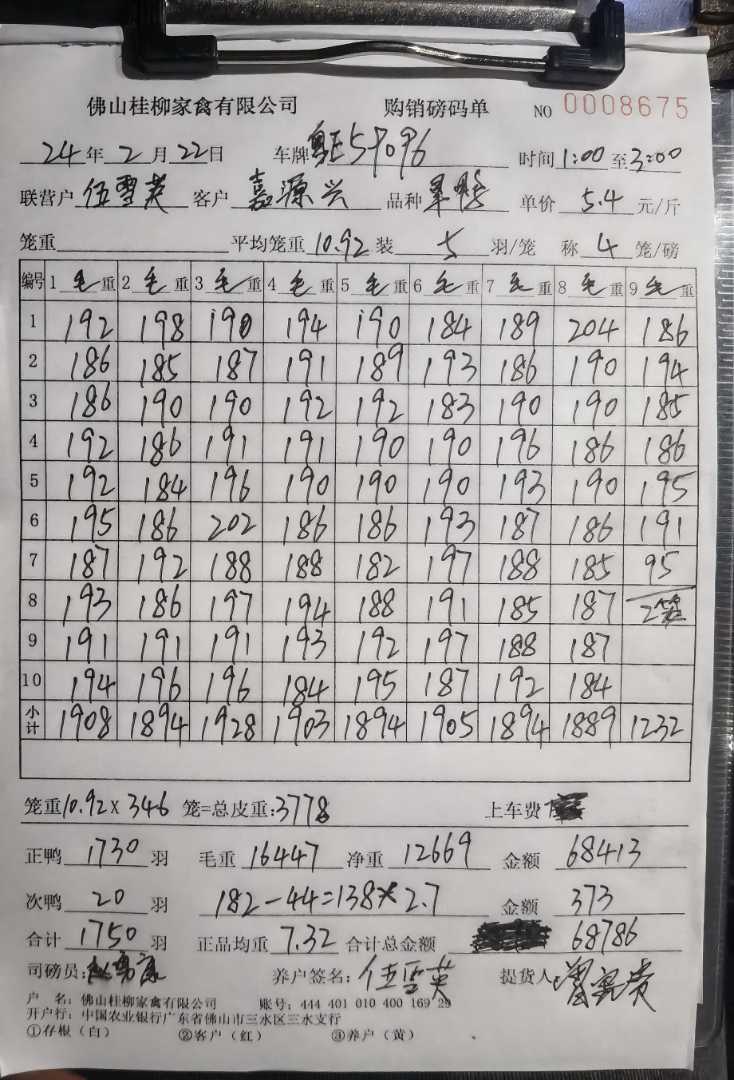 佛山桂柳家禽有限公司 购销磅码单 NO 0008675
24年2月22日 车牌 粤E59096 时间1:00至3:00
联营户 伍雪英 客户 嘉源兴 品种 单价 5.4 元/斤
笼重 平均笼重10.92 装 5 羽/笼 称 4 笼/磅
编号 1 毛重 2 毛重 3 毛重 4 毛重 5 毛重 6 毛重 7 毛重 8 毛重 9 毛重
1 192 198 190 194 190 184 189 204 186
2 186 185 187 191 189 193 186 190 194
3 186 190 190 192 192 183 190 190 185
4 192 186 191 191 190 190 196 186 186
5 192 184 196 190 190 190 193 190 195
6 195 186 202 186 186 193 187 186 191
7 187 192 188 188 182 197 188 185 95
8 193 186 197 194 188 191 185 187 2笼
9 191 191 191 193 192 197 188 187
10 194 196 196 184 195 187 192 184
小计 1908 1894 1928 1903 1894 1905 1894 1889 1232
笼重10.92×346 笼=总皮重:3778 上车费
正鸭 1730 羽 毛重 16447 净重 12669 金额 68413
次鸭 20 羽 182-44=138×2.7 金额 373
合计 1750 羽 正品均重 7.32 合计总金额 68786
司磅员: 养户签名: 伍雪英 提货人:
户 名: 佛山桂柳家禽有限公司 账号: 444 401 010 400 169 29
开户行: 中国农业银行广东省佛山市三水区三水支行
①存根(白) ②客户(红) ③养户(黄)